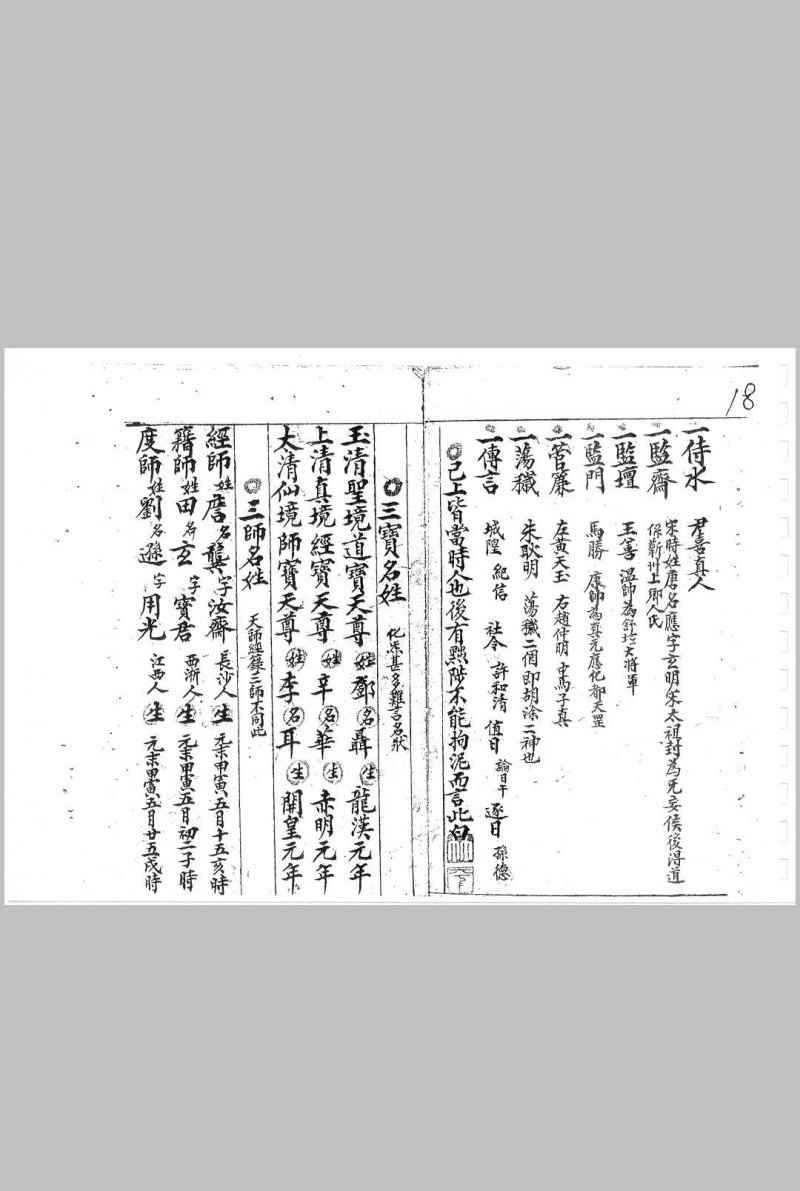 18
一侍水 尹喜真人
一監齋 宋時姓唐名應字玄明宋太祖封為旡妄侯後淂道
係蘄州上鄉人氏
一監壇 王善 溫帥為 大將軍
一監門 馬勝 康帥為真元應化都天罡
一菅簾 左黃天玉 右趙仲明 中馬子真
一蕩穢 朱耿明 蕩穢二個即胡涂二神也
一傳言 城隍 紀信 社令 許和清 值日 諭日午 逐日 孫德
已上皆當時人也後有點階不能拘泥而言此白
三寶名姓 化炁甚多難言名狀
玉清聖境道寶天尊 姓鄧 名聶 生 龍漢元年
上清真境經寶天尊 姓辛 名華 生 赤明元年
太清仙境師寶天尊 姓李 名耳 生 開皇元年
三師名姓 天師經籙三師不同此
經師姓詹名龔字汝齋 長沙人 生 元末甲寅五月十五亥時
籍師姓田名玄字寶君 西浙人 生 元末甲寅五月初二子時
度師姓劉名遜字用光 江西人 生 元末甲寅五月廿五戌時